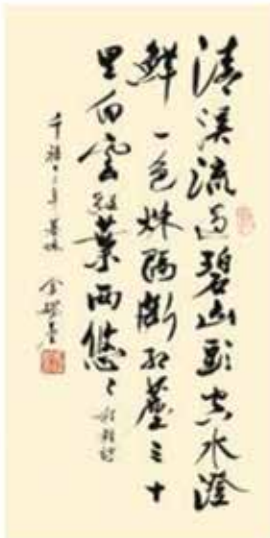 清溪流過碧山頭空水澄
鮮一色秋隔斷紅塵三十
里白雲紅葉兩悠々
千禧